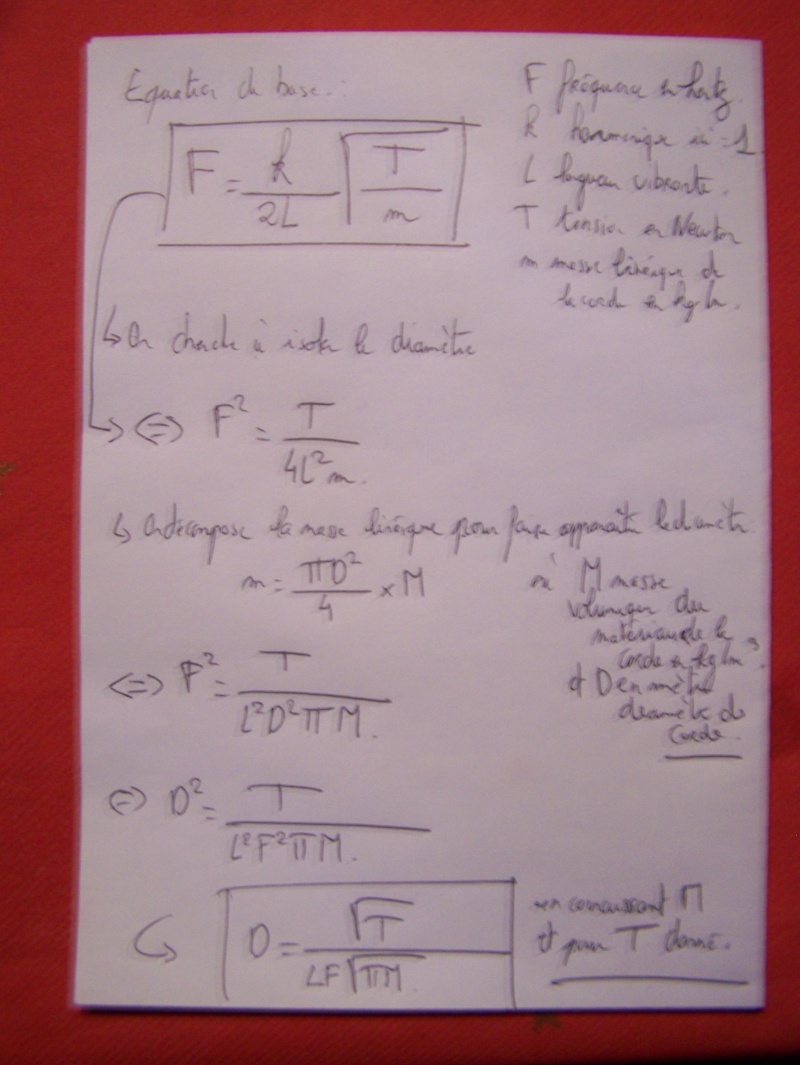 Equation de base :
F = k/2L √(T/m)
F fréquence en hertz.
k harmonique ici = 1
L longueur vibrante.
T tension en Newton
m masse linéique de
la corde en kg/m.
↳ On cherche à isoler le diamètre
↳ <=> F² = T/(4L²m).
↳ On décompose la masse linéique pour faire apparaître le diamètre
m = πD²/4 × M
où M masse
volumique du
matériau de la
corde en kg/m³.
et D en mètre
diamètre de
corde.
<=> F² = T/(L²D²πM).
<=> D² = T/(L²F²πM).
↳ D = √T/(LF√(πM))
en connaissant M
et pour T donné.